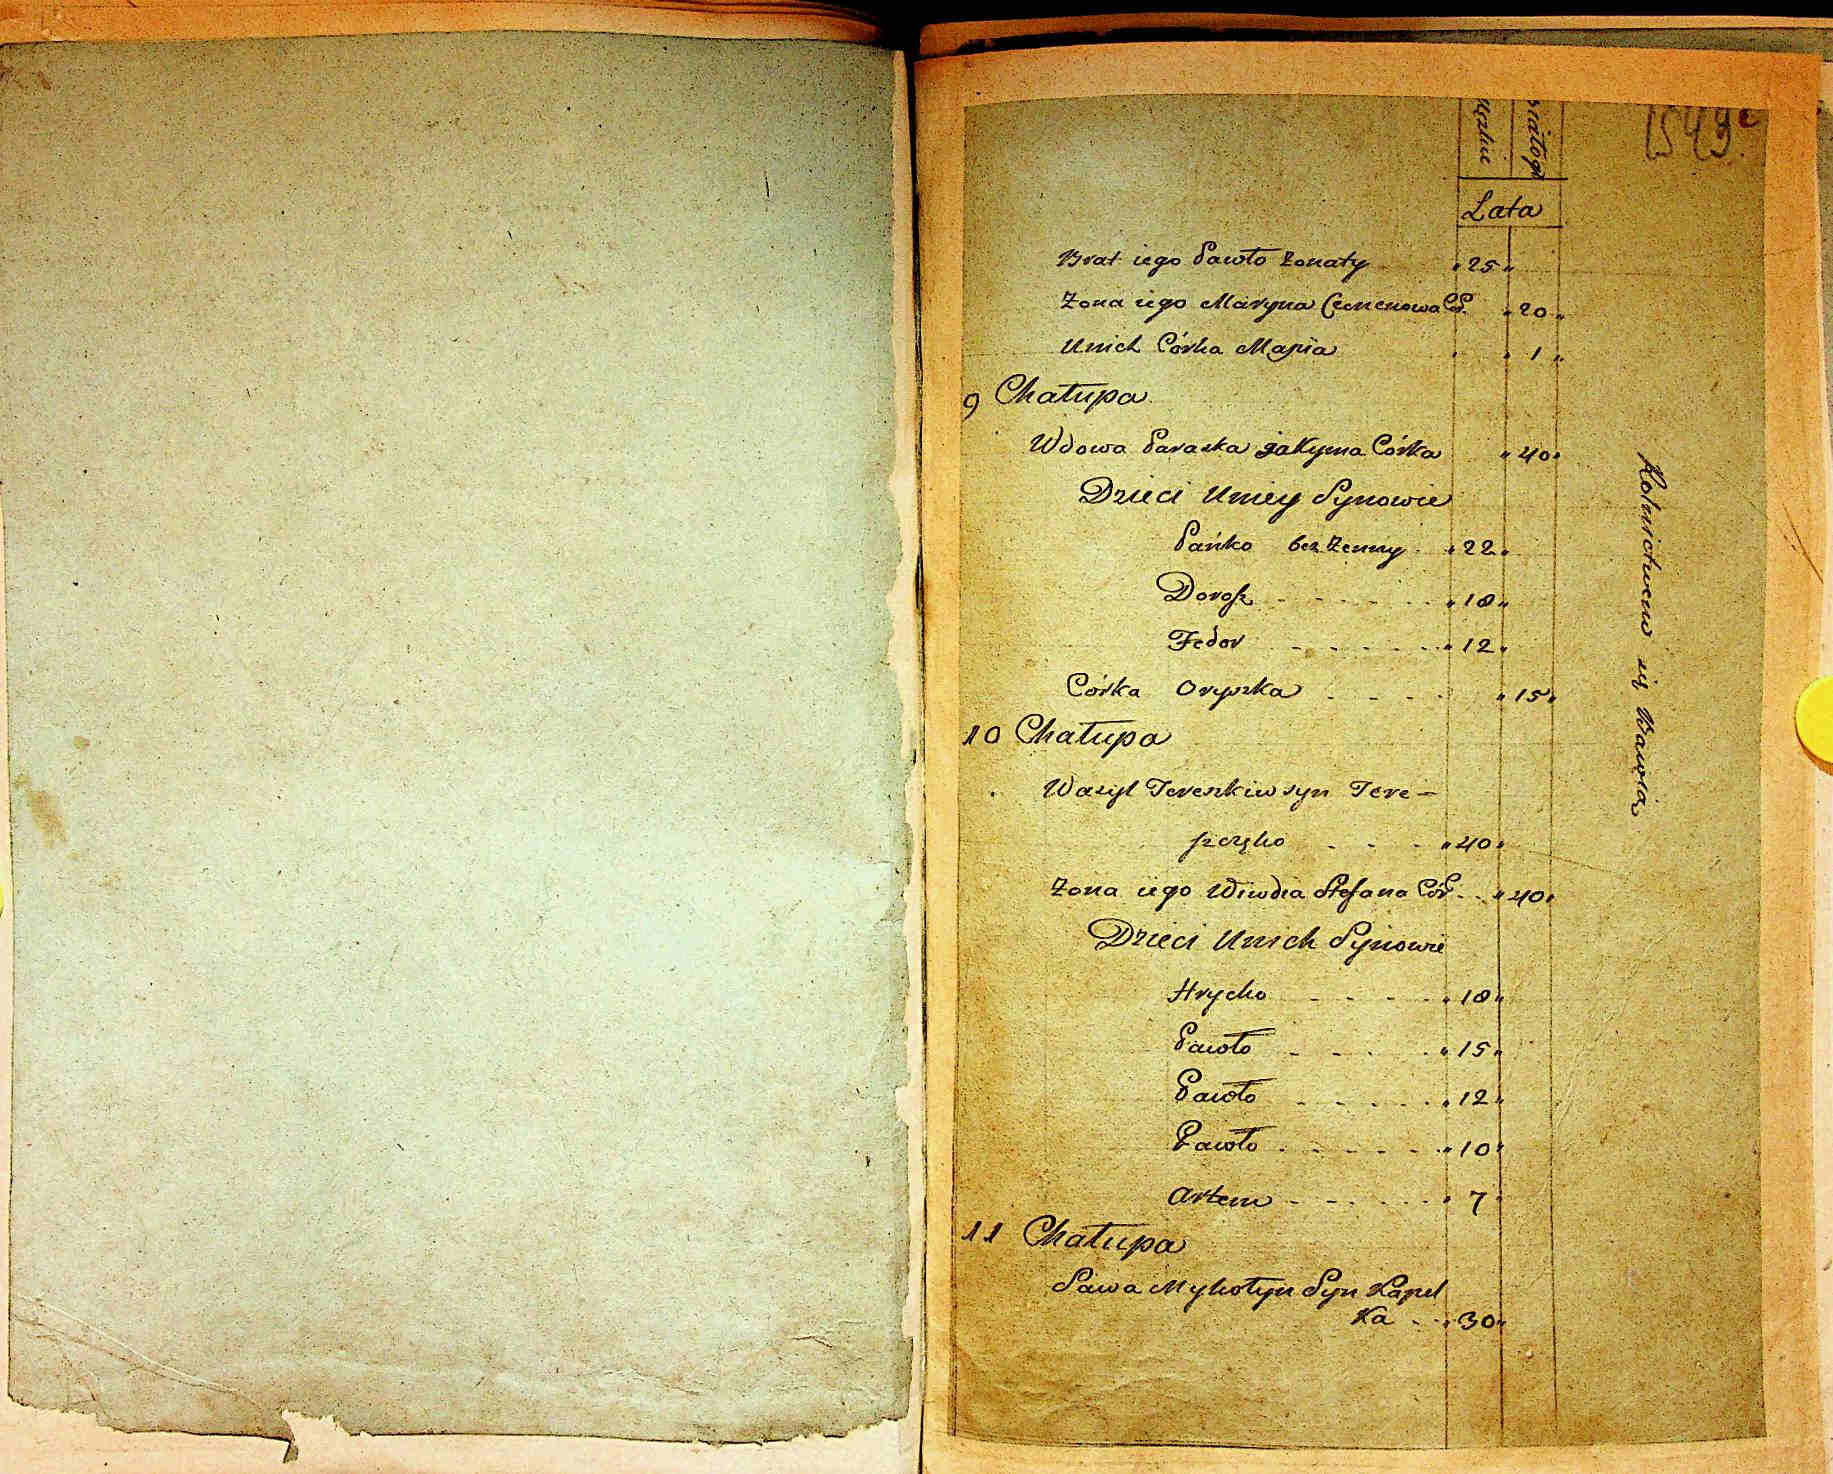 1549
Męzkie
Białogł
Lata
Brat iego Pawło żonaty „ 25 „
Żona iego Maryna Cemenowa Cór. „ 20 „
Unich Córka Maryia „ 1 „
9 Chałupa
Wdowa Paraska Jakyma Córka „ 40 „
Dzieci Uniey Synowie
Pańko bezżenny „ 22 „
Dorosz „ 18 „
Fedor „ 12 „
Córka Oryszka „ 15 „
10 Chałupa
Wasyl Tereszkiw syn Tere-
szczyko „ 40 „
Żona iego Wiwdia Stefana Cór. „ 40 „
Dzieci Unich Synowie
Hrycko „ 18 „
Pawło „ 15 „
Pawło „ 12 „
Pawło „ 10 „
Artem „ 7 „
11 Chałupa
Sawa Mykołyn Syn Kapel
ka „ 30 „
Rolnictwem się Bawią